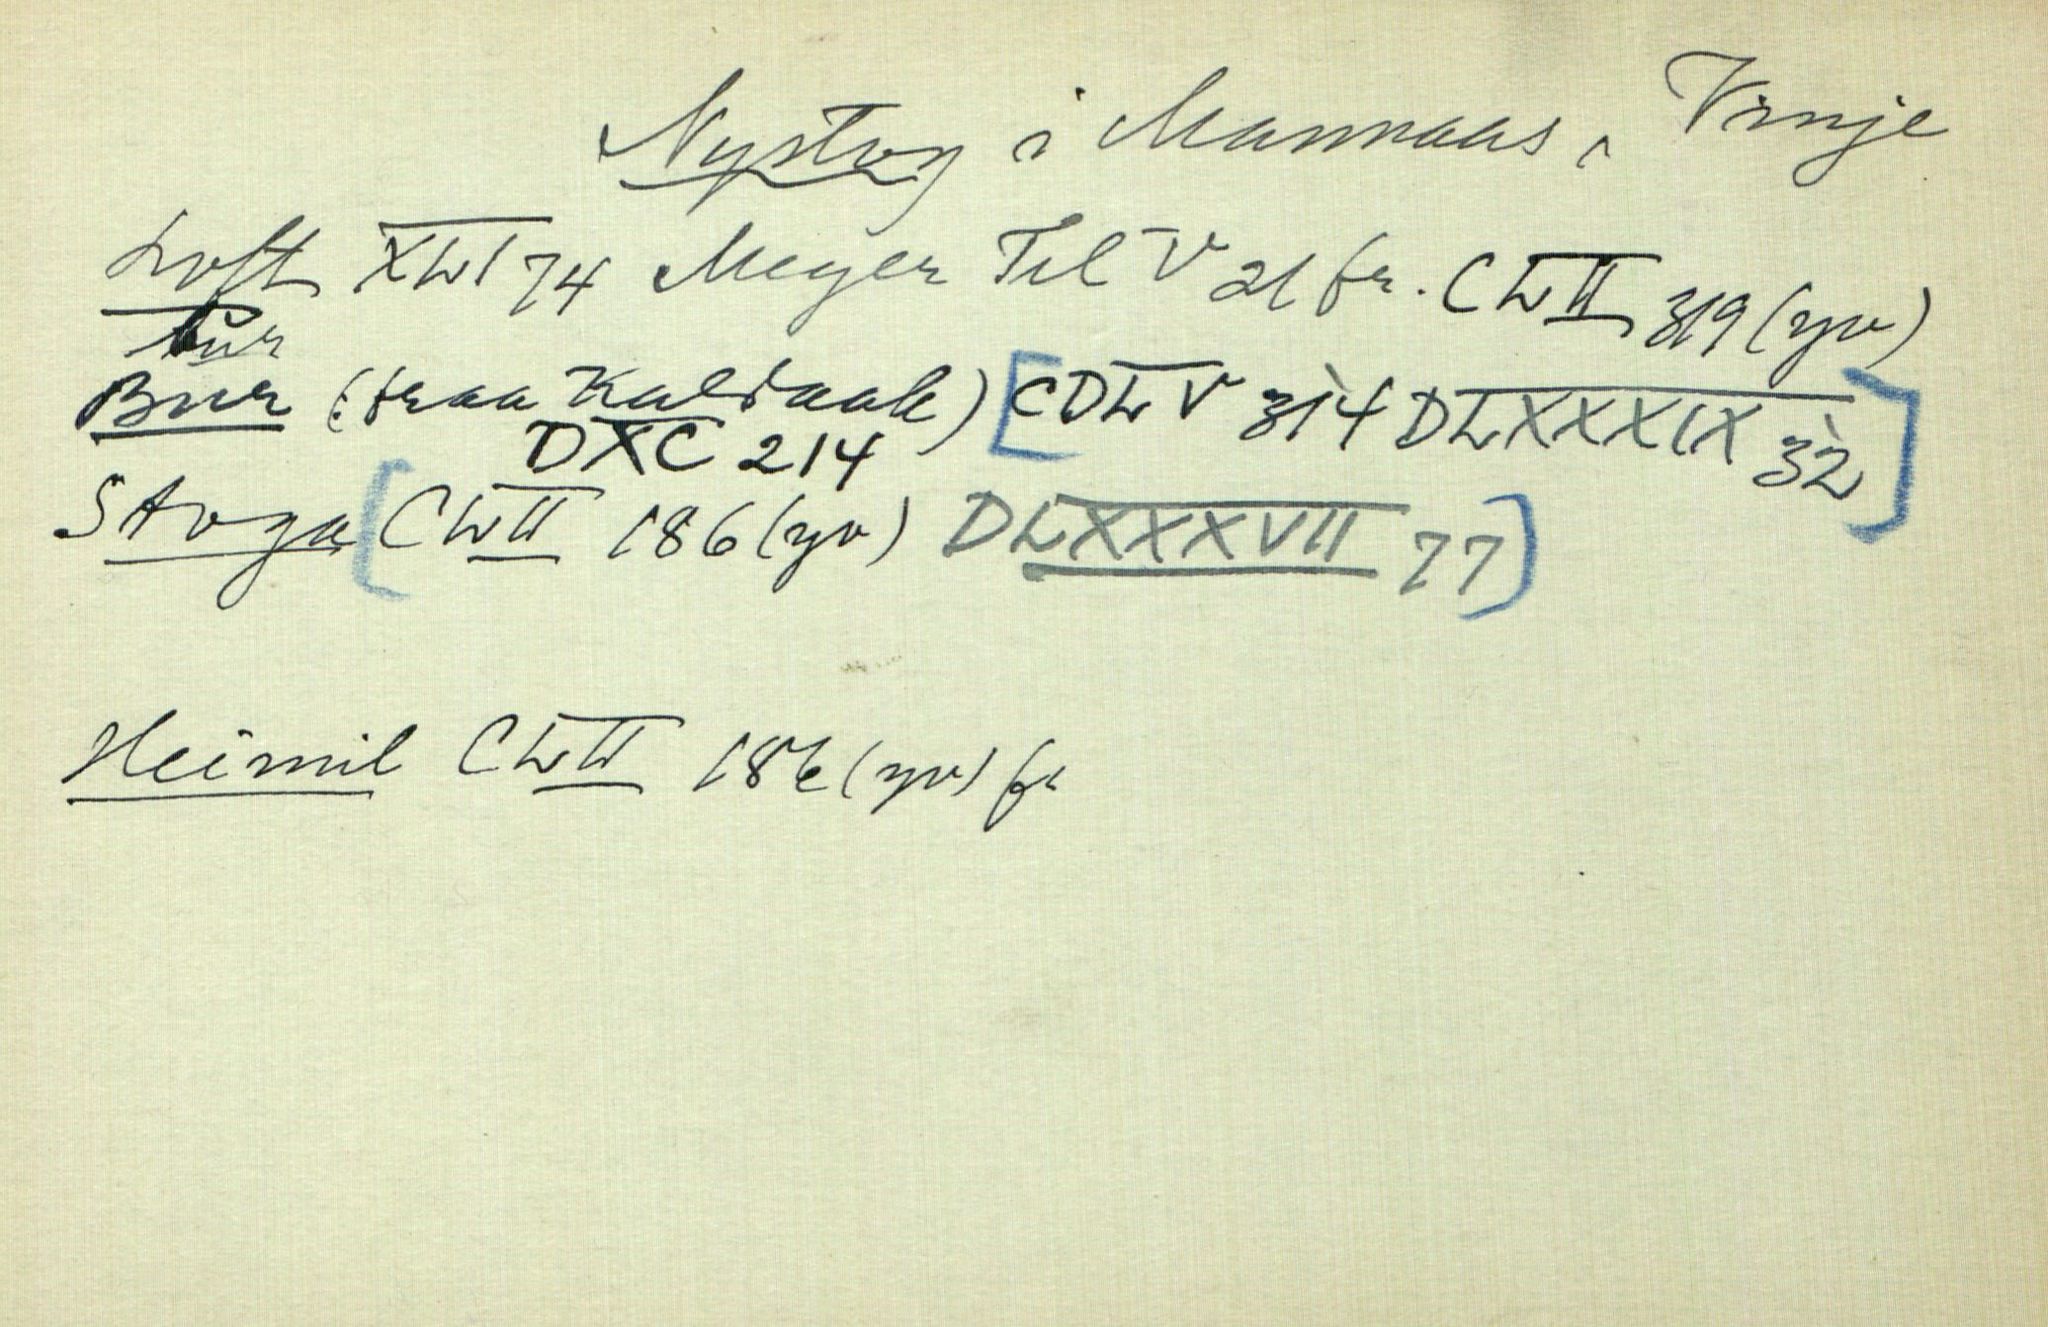 Nystog i Mannaas, Vinje
Loft XLVI 74 Meyer Tel V 21 fr. CLVII 319 (yv)
bur
Bur (fraa Kaldaak) [CDLV 314 DLXXXIX 32]
DXC 214
Stoga [CLVII 186 (yv) DLXXXVII 77]
Heimil CLVII 186 (yv) fr